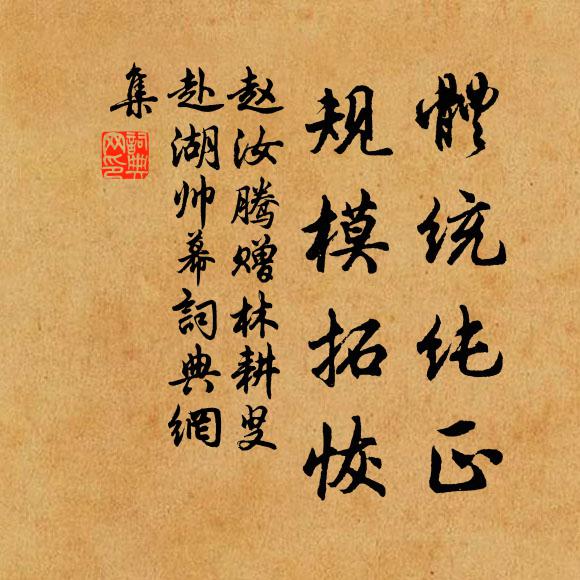 體统纯正
规模拓恢
赵汝腾赠林耕叟
赴湖帅幕詞典網
集
詞典
网印